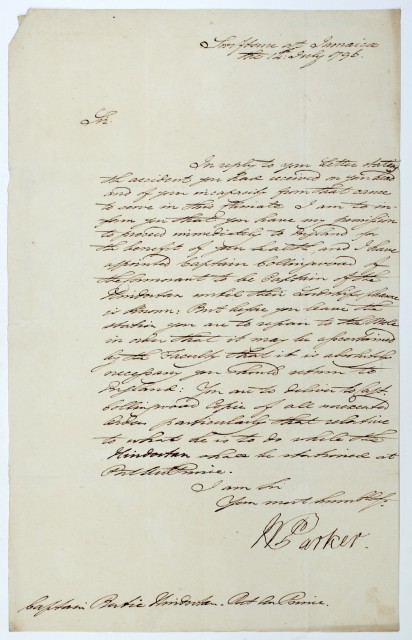 Swiftsure at Jamaica
the 12th July 1796.
Sir.
In reply to your Letter stating
the accident you have received on your
and of your incapacity from that cause
to serve in this Climate I am to in-
form you that you have my permission
to proceed immediately to England for
the benefit of your Health, and I have
appointed Captain Collingwood of
the Cormorant to be Captain of the
Hindostan until their Lordships pleasure
is known: But before you leave the
station you are to repair to the Mole
in order that it may be ascertained
by the Faculty that it is absolutely
necessary you should return to
England. You are to deliver to Capt.
Collingwood Copies of all unexecuted
Orders particularly that relative
to what he is to do while the
Hindostan shall be stationed at
Port au Prince.
I am Sir
Your most humble Sr.
Parker.
Captain Bertie Hindostan. Port au Prince.